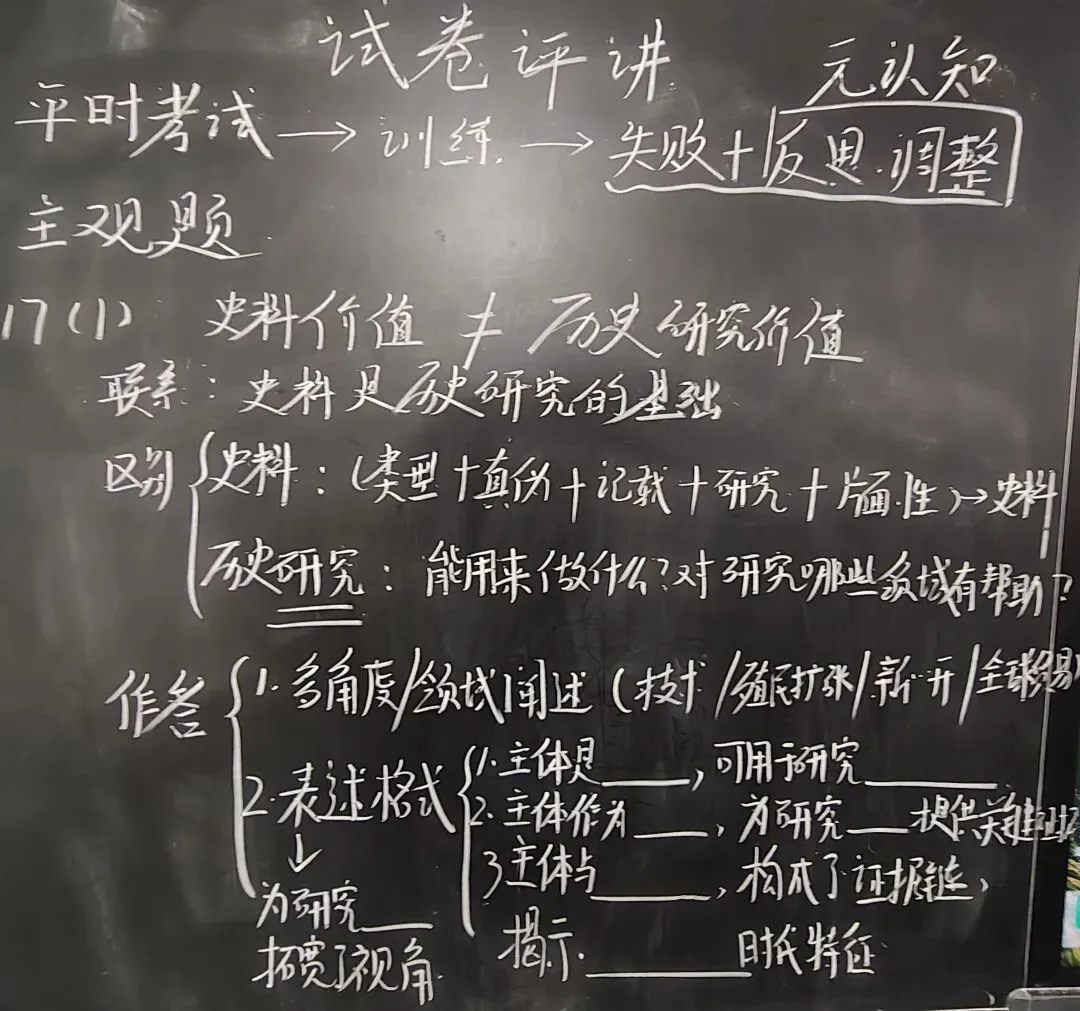 试卷评讲
元认知
平时考试→训练→失败+反思.调整
主观题
17(1) 史料价值 ≠ 历史研究价值
联系：史料是历史研究的基础
区别
史料：(类型+真伪+记载+研究+片面性)→史料
历史研究：能用来做什么？对研究哪些领域有帮助？
作答
1.多角度/领域阐述（技术/殖民扩张/新.开/全球贸易
2.表述格式
↓
为研究____
拓宽了视角
1.主体是____，可用于研究____
2.主体作为____，为研究____提供关键证据
3主体与____，构成了证据链，
揭示.____时代特征